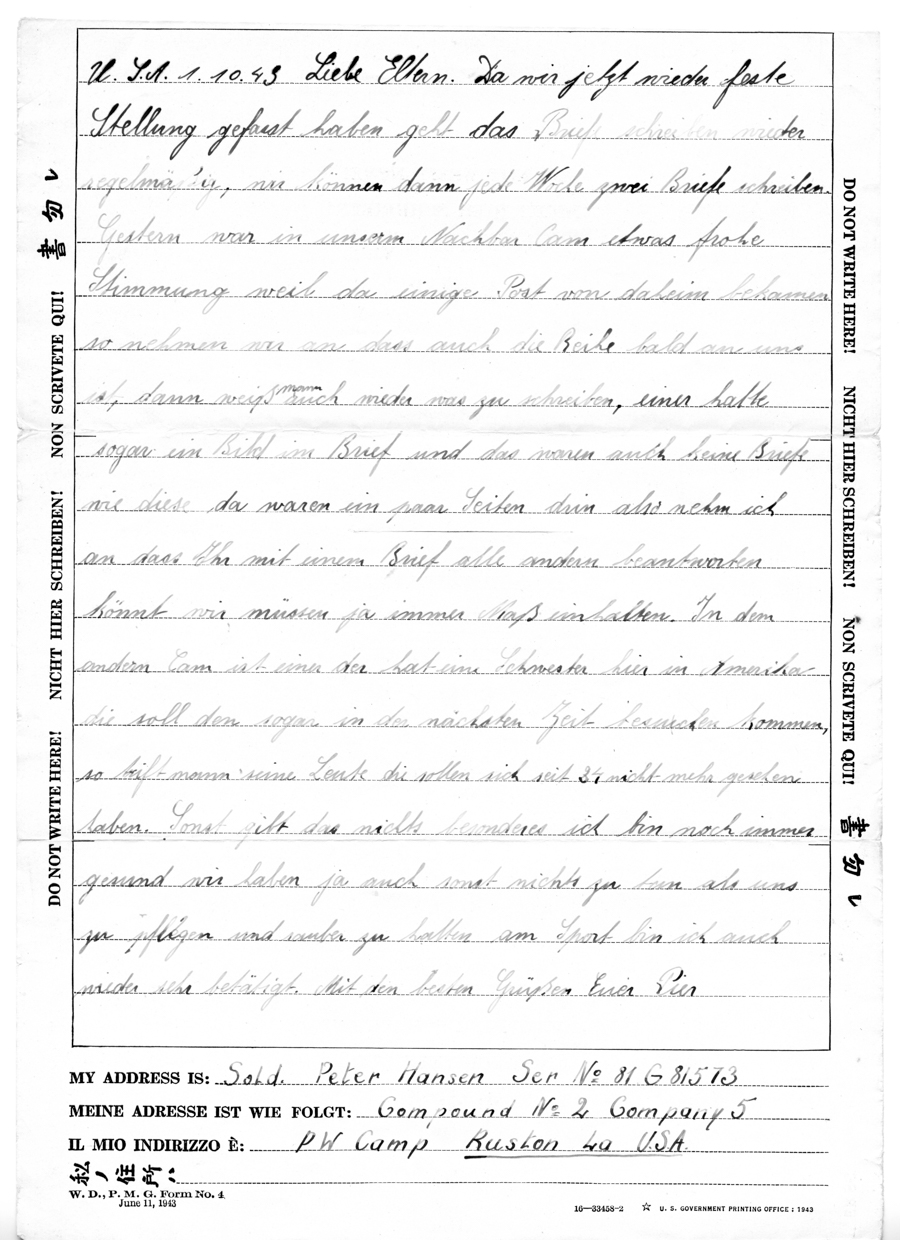 U. S.A. 1. 10. 43 Liebe Eltern. Da wir jetzt wieder feste
Stellung gefasst haben geht das Brief schreiben wieder
regelmässig, wir können dann jede Woche zwei Briefe schreiben.
Gestern war in unserm Nachbar Cam etwas frohe
Stimmung weil da einige Post von daheim bekamen
so nehmen wir an dass auch die Reihe bald an uns
ist, dann weiß mann auch wieder was zu schreiben, einer hatte
sogar ein Bild im Brief und das waren auch keine Briefe
wie diese da waren ein paar Seiten drin also nehm ich
an dass Ihr mit einem Brief alle andern beantworten
könnt wir müssen ja immer Maß einhalten. In dem
andern Cam ist einer der hat eine Schwester hier in Amerika
die soll den sogar in der nächsten Zeit besuchen kommen,
so trift mann seine Leute die sollen sich seit 24 nicht mehr gesehen
haben. Sonst gibt das nichts besonderes ich bin noch immer
gesund wir haben ja auch sonst nichts zu tun als uns
zu pflegen und sauber zu halten am Sport bin ich auch
wieder sehr betätigt. Mit den besten Grüßen Euer Pier
MY ADDRESS IS: Sold. Peter Hansen Ser № 81 G 81573
MEINE ADRESSE IST WIE FOLGT: Compound № 2 Company 5
IL MIO INDIRIZZO È: PW Camp Ruston La U.S.A.
私ノ住所:
W. D., P. M. G. Form No. 4
June 11, 1943
16—33458-2 ☆ U. S. GOVERNMENT PRINTING OFFICE : 1943
DO NOT WRITE HERE! NICHT HIER SCHREIBEN! NON SCRIVETE QUI! 書勿レ
DO NOT WRITE HERE! NICHT HIER SCHREIBEN! NON SCRIVETE QUI! 書勿レ